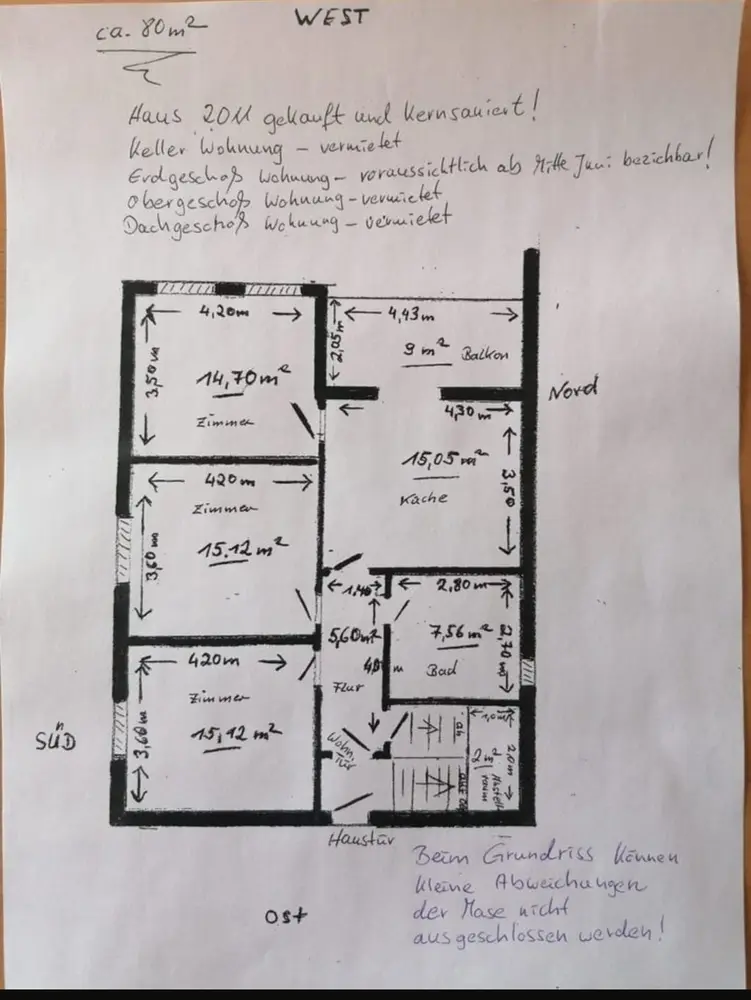 WEST
ca. 80m²
Haus 2011 gekauft und Kernsaniert!
Keller Wohnung - vermietet
Erdgeschoß Wohnung - voraussichtlich ab Mitte Juni beziehbar!
Obergeschoß Wohnung - vermietet
Dachgeschoß Wohnung - vermietet
4,20m
4,43m
2,05m
9 m² Balkon
3,50m
14,70m²
Zimmer
Nord
4,30m
420m
15,05m²
3,50
Zimmer
Küche
15,12 m²
3,60m
1,40
2,80m
5,60m²
7,56 m²
2,70m
420m
m
Bad
Zimmer
Flur
1,0m
ab
15,12 m²
3,60m
SÜD
Wohn.
Tür
2,0m
raum
Haustür
Beim Grundriss können
kleine Abweichungen
der Mase nicht
ausgeschlossen werden!
Ost